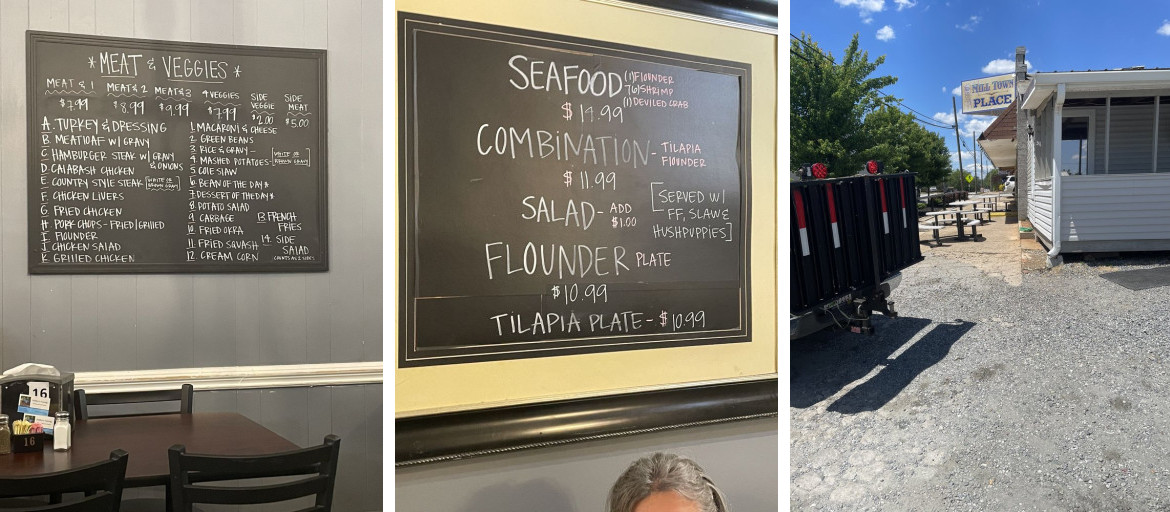 * MEAT & VEGGIES *
MEAT & 1 MEAT & 2 MEAT & 3 4 VEGGIES SIDE VEGGIE SIDE MEAT
$7.99 $8.99 $9.99 $7.99 $2.00 $5.00
A. TURKEY & DRESSING
B. MEATLOAF W/ GRAVY
C. HAMBURGER STEAK W/ GRAVY & ONIONS
D. CALABASH CHICKEN
E. COUNTRY STYLE STEAK [WHITE OR BROWN GRAVY]
F. CHICKEN LIVERS
G. FRIED CHICKEN
H. PORK CHOPS - FRIED/GRILLED
I. FLOUNDER
J. CHICKEN SALAD
K. GRILLED CHICKEN
1. MACARONI & CHEESE
2. GREEN BEANS
3. RICE & GRAVY -
4. MASHED POTATOES - [WHITE OR BROWN GRAVY]
5. COLE SLAW
6. BEAN OF THE DAY
7. DESSERT OF THE DAY
8. POTATO SALAD
9. CABBAGE
10. FRIED OKRA
11. FRIED SQUASH
12. CREAM CORN
13. FRENCH FRIES
14. SIDE SALAD
(COUNTS AS 2 SIDES)
16
16
SEAFOOD (1) FLOUNDER
(6) SHRIMP
(1) DEVILED CRAB
COMBINATION - TILAPIA
FLOUNDER
$11.99
SALAD - ADD $1.00
[SERVED W/
FF, SLAW &
HUSHPUPPIES]
FLOUNDER PLATE
$10.99
TILAPIA PLATE - $10.99
MILL TOWN
PLACE